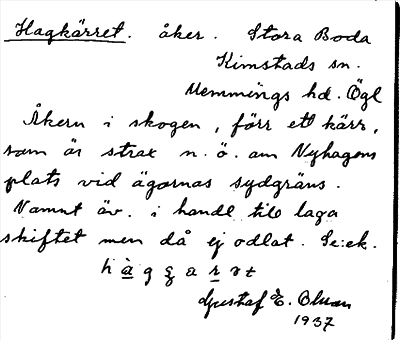 Hagkärret. åker. Stora Boda
Kimstads sn.
Memmings hd. Ögl
Åkern i skogen, förr ett kärr,
som är strax n.ö. om Nyhagens
plats vid ägornas sydgräns.
Namnt äv. i handl till laga
skiftet men då ej odlat. Se:ek.
Gustaf E.
1937